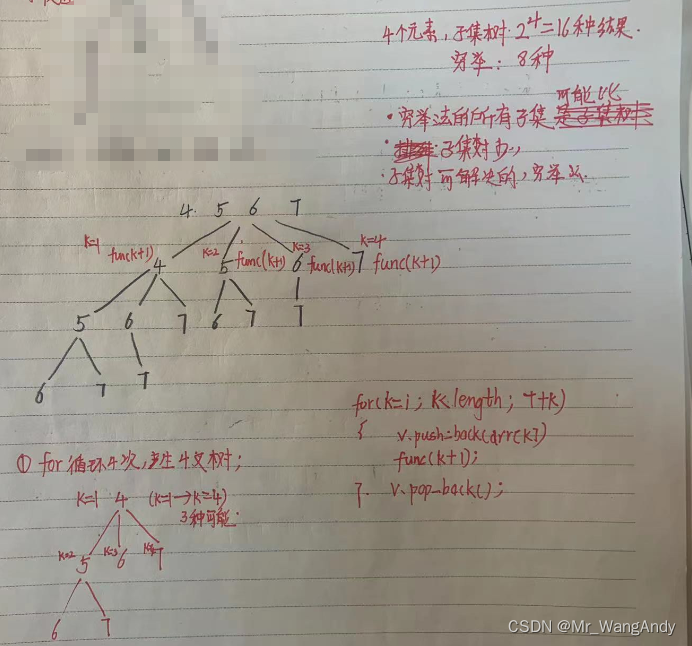 4个元素，子集树. 2^4=16种结果.
穷举：8种
可能比
·穷举法的所有子集
子集树少,
·子集树可解决的，穷举
4. 5 6 7
k=1 func(k+1) 4 k=2 5 func(k+1) k=3 6 func(k+1) k=4 7 func(k+1)
5 6 7 6 7 7
6 7 7
for(k=i; k<length; ++k)
{ v.push-back(arr[k])
func(k+1);
}. v.pop-back();
① for循环4次，产生4叉树；
k=1 4 (k=1→k=4)
3种可能.
k=2 5 k=3 6 k=4 7
6 7
CSDN @Mr_WangAndy